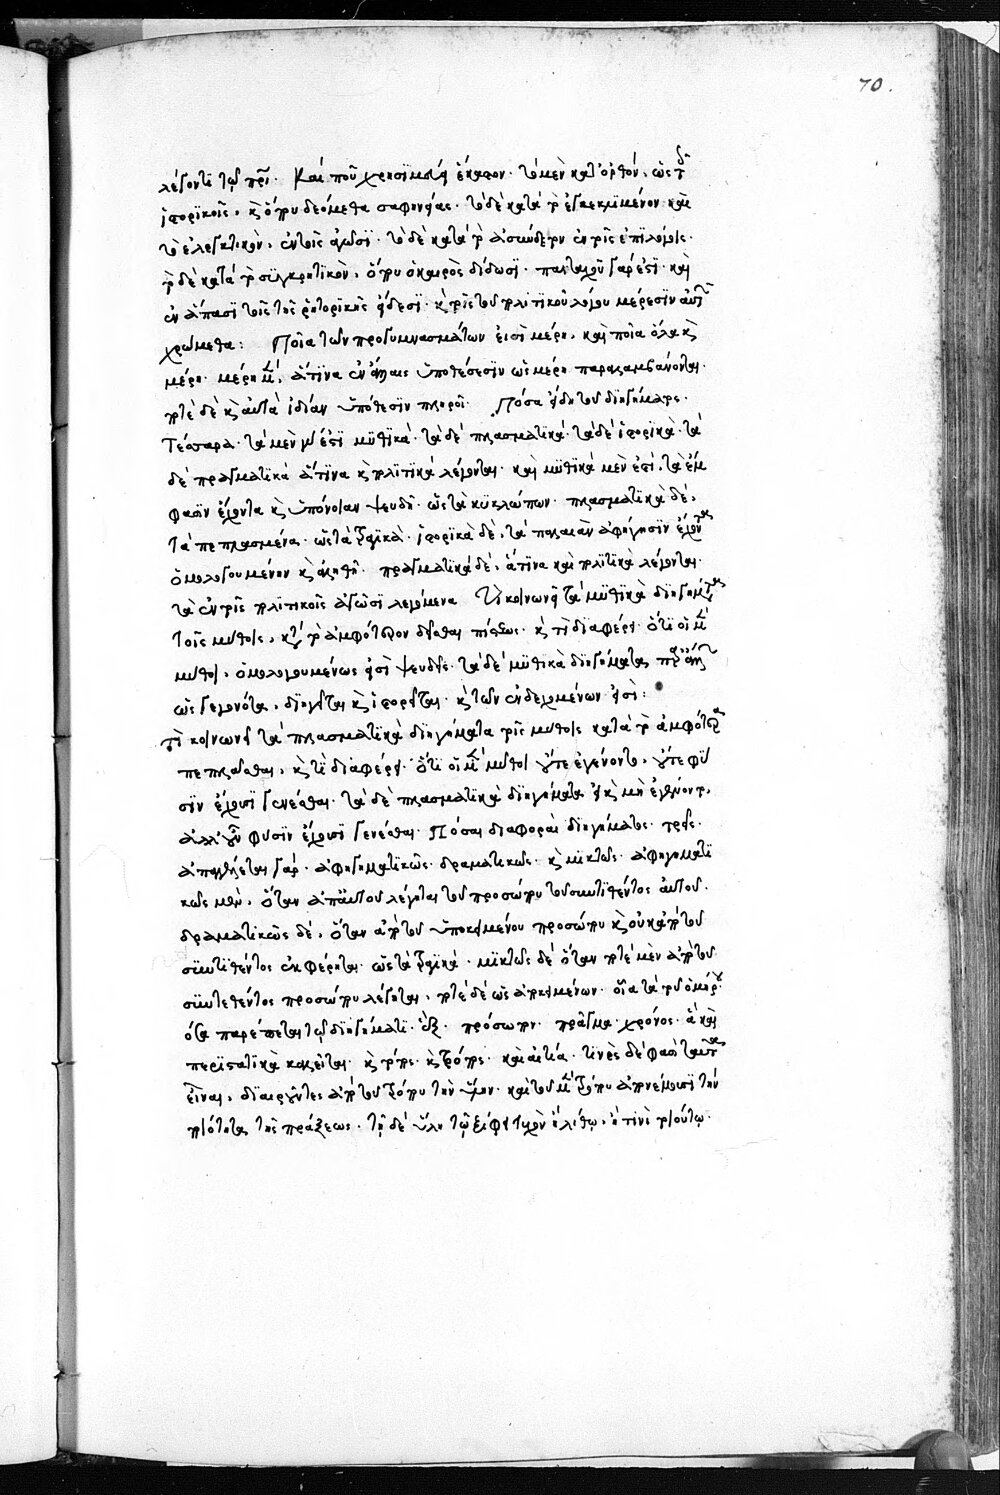 70.
λέγοντι τῷ πρὶ. Καὶ ποῦ χρησιμεύει ἕκαστον. τὸ μὲν κατ' ὀρθὸν, ὡς
ἱστορικοῖς, κỳ ὅπου δεόμεθα σαφηνείας. τὸ δὲ κατὰ τὸ ἐγκεκλιμένον καὶ
τὸ ἐλεγκτικὸν, ἐν τοῖς ἀγῶσϊ. τὸ δὲ κατὰ τὸ ἀσύνδετον ἐν τοῖς ἐπιλόγοις.
τὸ δὲ κατὰ τὸ συγκρητικὸν, ὅπου ὁ καιρὸς δίδωσϊ. πανταχοῦ γάρ ἐστϊ καὶ
ἐν ἅπασι τοῖς τῆς ῥητορικῆς εἴδεσι. κỳ τοῖς τοῦ πολιτικοῦ λόγου μέρεσιν αὐτ
χρώμεθα: Ποῖα τῶν προγυμνασμάτων εἰσὶ μέρη, καὶ ποῖα ὅλα κỳ
μέρη. μέρη μ, ἅτινα ἐν ὑποθέσεσιν ὡς μέρη παραλαμβάνονται.
ποτὲ δὲ κỳ αὐτὰ ἰδίαν ὑπόθεσιν πληροῖ. Πόσα εἴδη τοῦ διηγήματος.
Τέσσαρα. τὰ μὲν γ ἐστϊ μυθικά. τὰ δὲ πλασματικά. τὰ δὲ ἱστορικά. τὰ
δὲ πραγματικὰ ἅτινα κỳ πολιτικὰ λέγονται. καὶ μυθικὰ μὲν ἐστϊ, τὰ ἔμ
φασιν ἔχοντα κỳ ὑπόνοιαν ψευδῆ. ὡς τὰ κυκλώπων. πλασματικὰ δὲ,
τὰ πεπλασμένα. ὡς τὰ τραγικὰ. ἱστορικὰ δὲ, τὰ παλαιὰν ἀφήγησιν ἔχοντα
ὁμολογουμένην κỳ ἀληθῆ. πραγματικὰ δὲ, ἅτινα καὶ πολιτικὰ λέγονται.
τὰ ἐν τοῖς πολιτικοῖς ἀγῶσι λεγόμενα Τί κοινωνεῖ τὰ μυθικὰ διηγήματα
τοῖς μύθοις, κατὰ τὸ ἀμφότερον δεῖσθαι πίστεως. κỳ τὶ διαφέρει. ὅτι οἱ μ
μῦθοι, ὁμολογουμένως εἰσὶ ψευδεῖς. τὰ δὲ μυθικὰ διηγήματα
ὡς γεγονότα, διηγεῖται κỳ ἱστορεῖται. κỳ τῶν ἐνδεχομένων εἰσὶ:
τὶ κοινωνεῖ τὰ πλασματικὰ διηγήματα τοῖς μύθοις κατὰ τὸ ἀμφότερα
πεπλάσθαι, κỳ τὶ διαφέρει. ὅτι οἱ μ μῦθοι οὔτε ἐγένοντο, οὔτε φύ
σιν ἔχουσι γενέσθαι. τὰ δὲ πλασματικὰ διηγήματα εἰ κỳ μὴ ἐγένοντο,
ἀλλ' οὖν φύσιν ἔχουσι γενέσθαι. Πόσαι διαφοραὶ διηγήματος. τρεῖς.
ἀπαγγέλεται γάρ. ἀφηγματικῶς. δραματικῶς. κỳ μικτῶς. ἀφηγηματι
κῶς μὲν, ὅταν ἀπ' αὐτοῦ λέγηται τοῦ προσώπου τοῦ συντιθέντος αὐτοῦ.
δραματικῶς δὲ, ὅταν ἀπὸ τοῦ ὑποκειμένου προσώπου κỳ οὐκ ἀπὸ τοῦ
συντιθέντος ἐκφέρηται. ὡς τὰ τραγικά. μικτῶς δὲ ὅταν ποτὲ μὲν ἀπὸ τοῦ
συντεθέντος προσώπου λέγηται, ποτὲ δὲ ὡς ἀποκειμένων. οἷα τὰ τοῦ ὁμήρου
ὅσα παρέπεται τῷ διηγήματι. ἓξ. πρόσωπον. πρᾶγμα. χρόνος. ἃ καὶ
περιστατικὰ καλεῖται. κỳ τόπος. κỳ τρόπος. καὶ αἰτία. τινὲς δὲ φασὶ ταῦτα
εἶναι, διαιροῦντες ἀπὸ τοῦ τρόπου τὴν ὕλην. καὶ τοῦ μ τρόπου ἀπονέμουσι τὴν
ποιότητα τῆς πράξεως. τῇ δὲ ὕλῃ τῷ ξίφει τυχὸν ἢ λίθῳ, ἤ τινι τοιούτῳ.